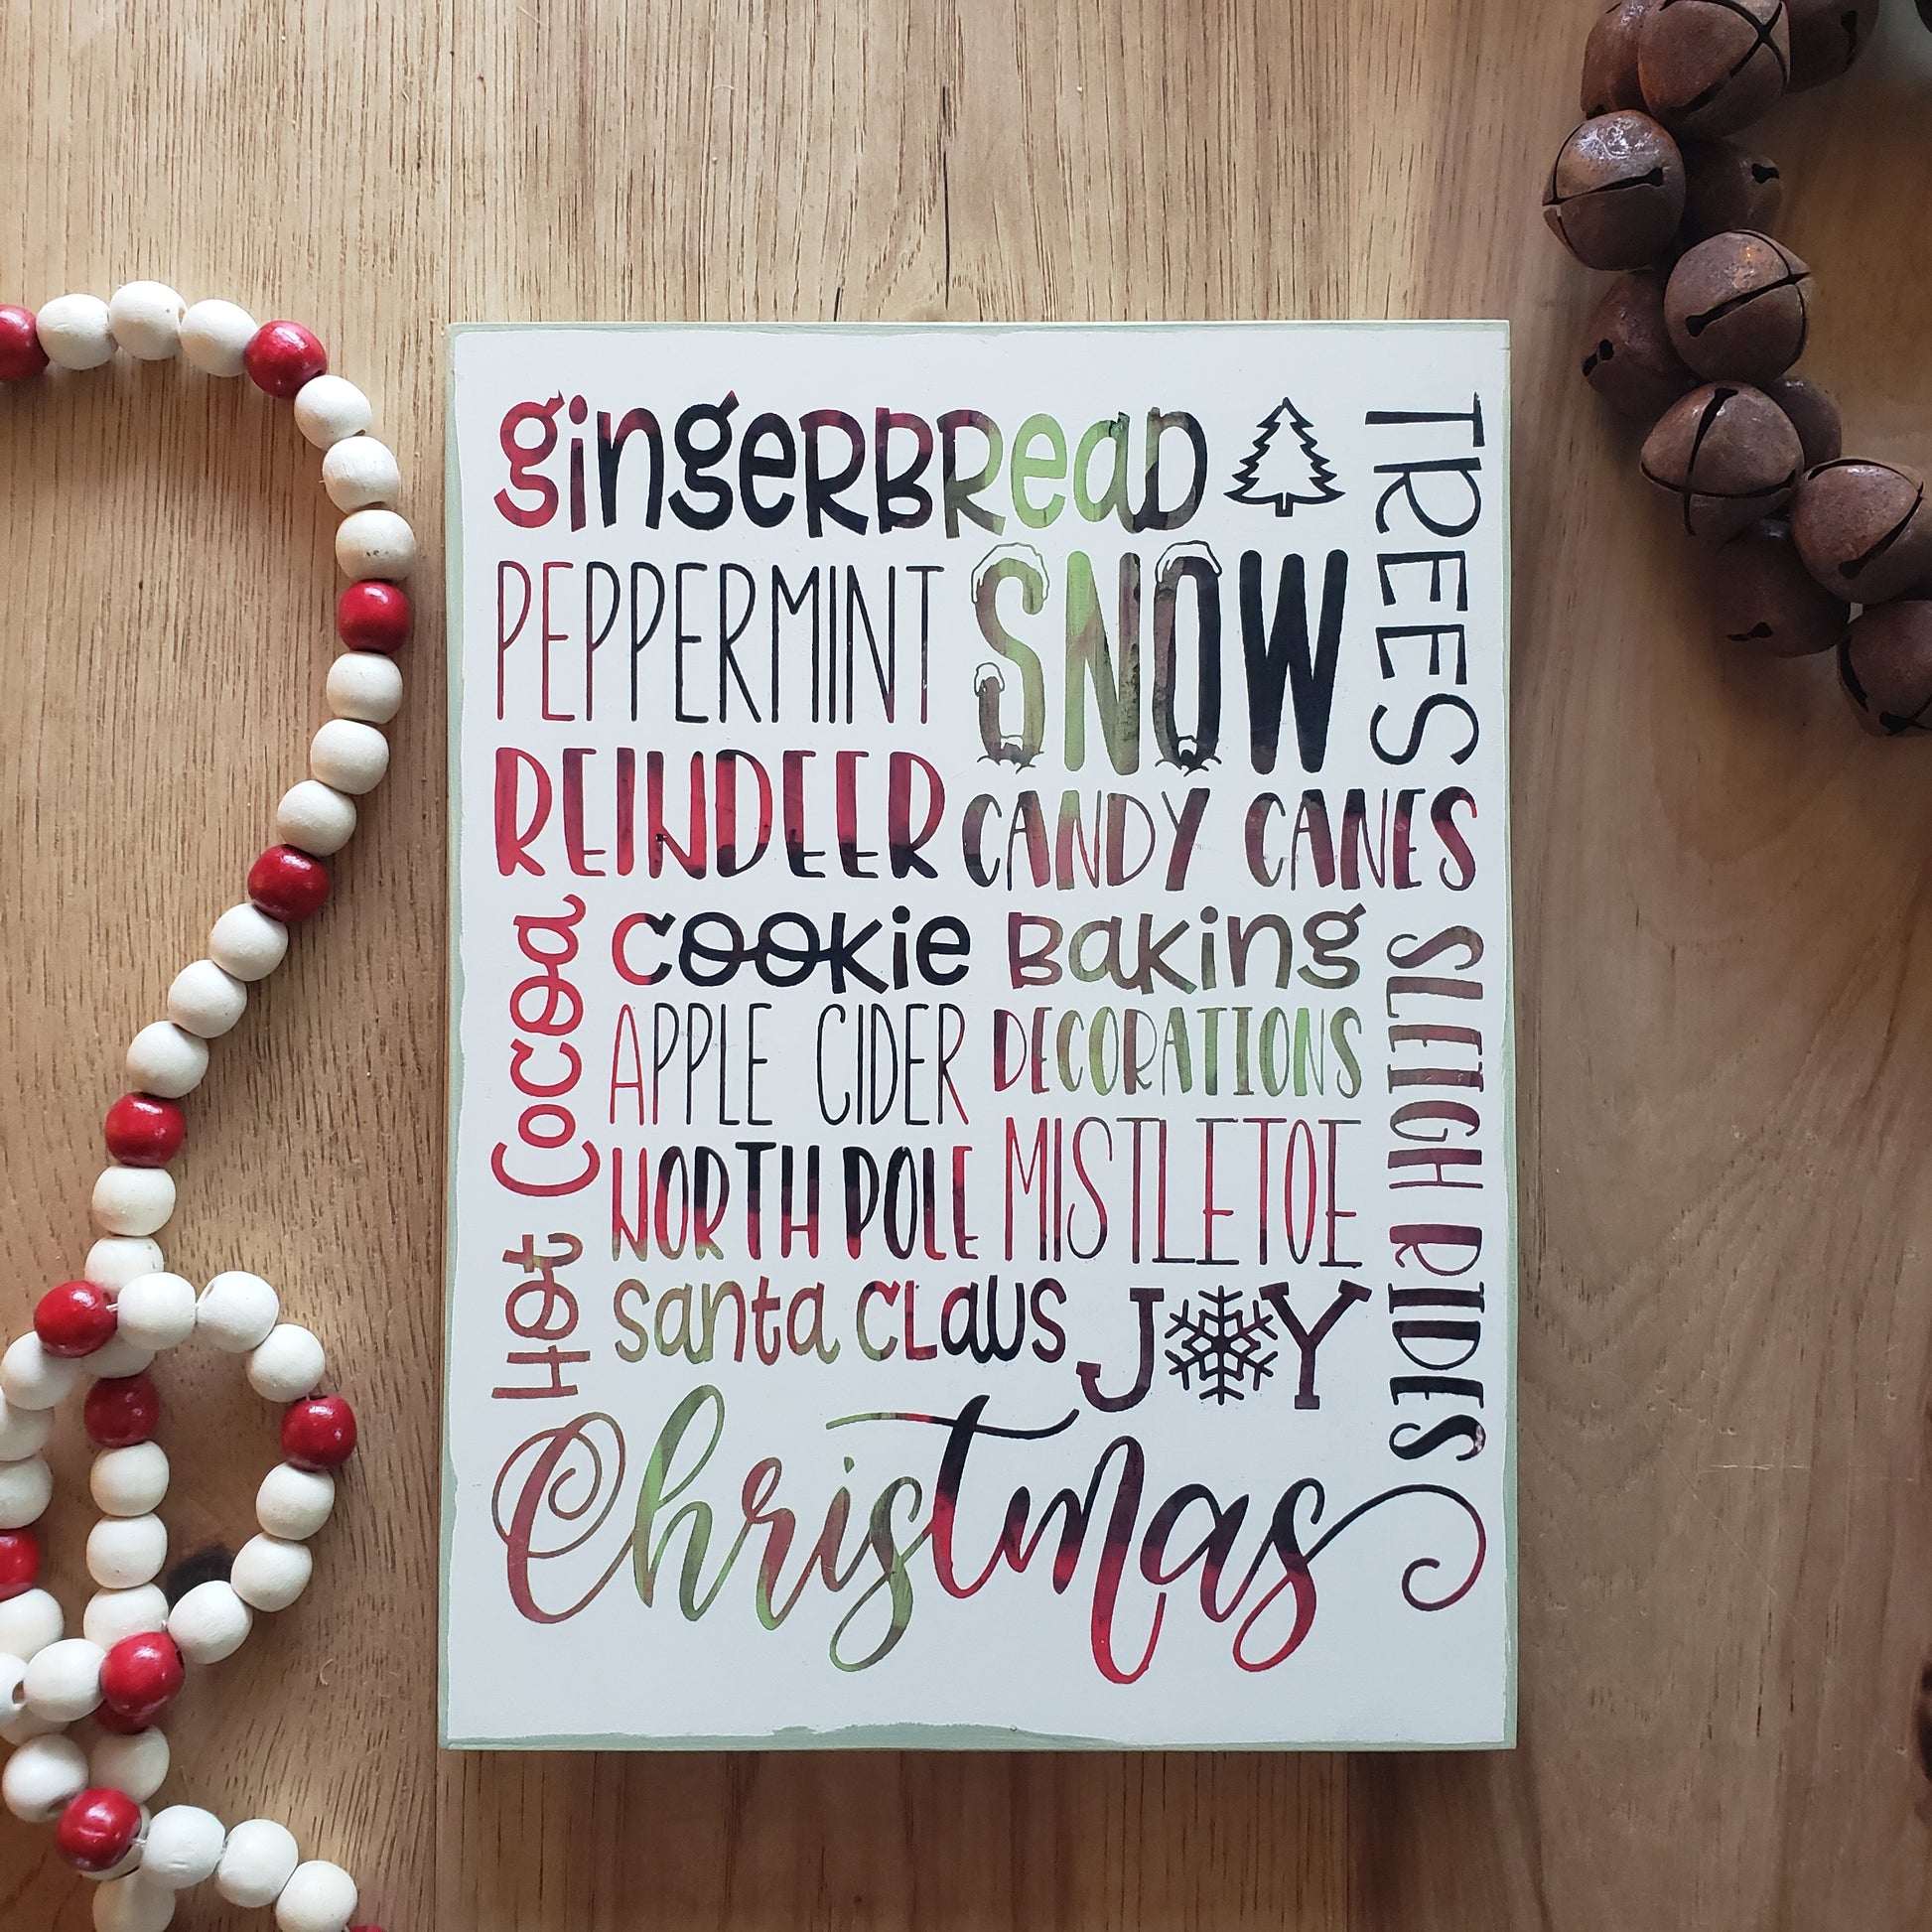 gingerBread
TREES
PEPPERMINT
SNOW
REINDEER
CANDY CANES
Hot Cocoa
cookie Baking
SLEIGH RIDES
APPLE CIDER
DECORATIONS
NORTH POLE
MISTLETOE
santa claus
JOY
Christmas